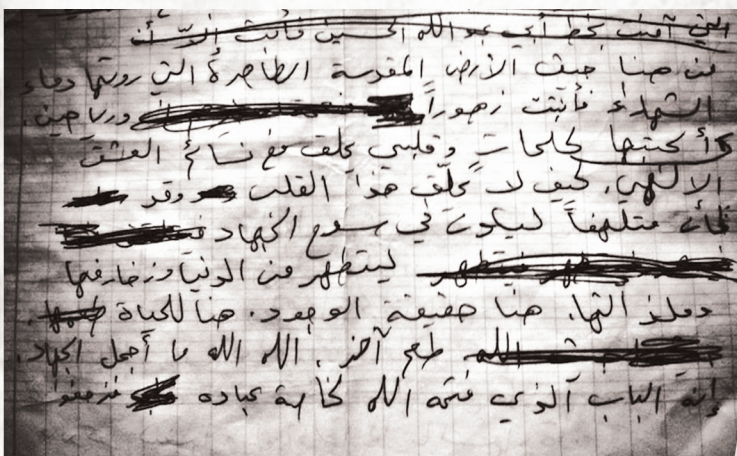 التي آمنت بخط أبي عبد الله الحسين
من هنا حيث الأرض المقدسة الطاهرة التي روتها دماء
الشهداء فأنبتت زهوراً ورياحين.
كلمات وقلبي يحلق مع نسائم العشق
الالهي. كيف لا يحلق هذا القلب وقد
متلهفاً ليكون في سوح الجهاد
ليتطهر من الدنيا وزخارفها
وملذاتها. هنا حقيقة الوجود. هنا للحياة
طعم آخر. الله الله ما أجمل الجهاد.
إنه الباب الذي فتحه الله لخاصة عباده